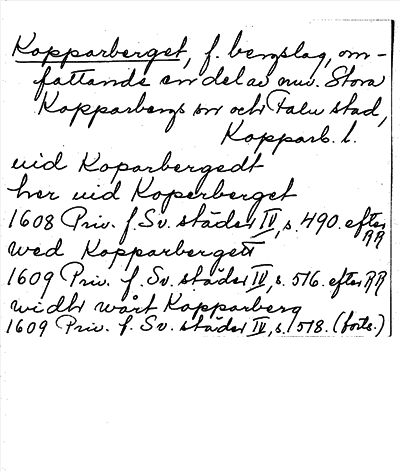 Kopparberget, f. bergslag, om-
fattande en del av nuv. Stora
Kopparbergs sn och Falu stad,
Kopparb. l.
uid Koparbergedt
her uid Koperberget
1608 Priv. f. Sv. städer IV, s. 490. efter RR
wed Kopparbergett
1609 Priv. f. Sv. städer IV, s. 516. efter RR
widh wårt Kopparberg
1609 Priv. f. Sv. städer IV, s. 518. (forts.)